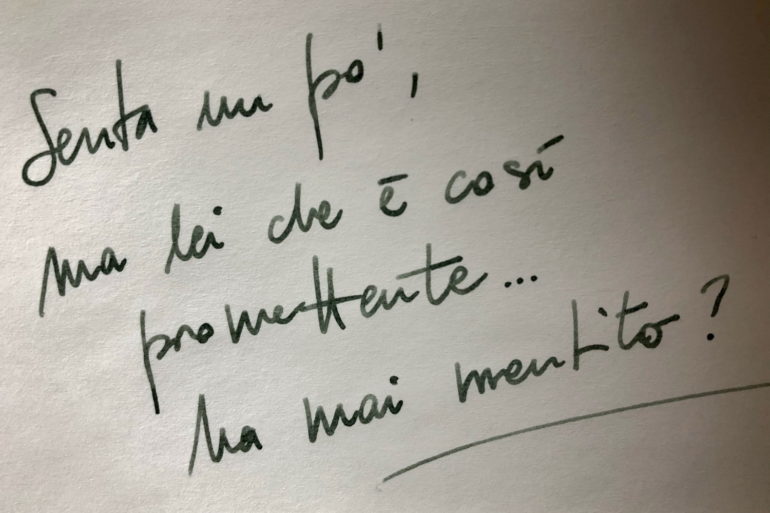 Senta un po',
ma lei che è così
promettente...
ha mai mentito?